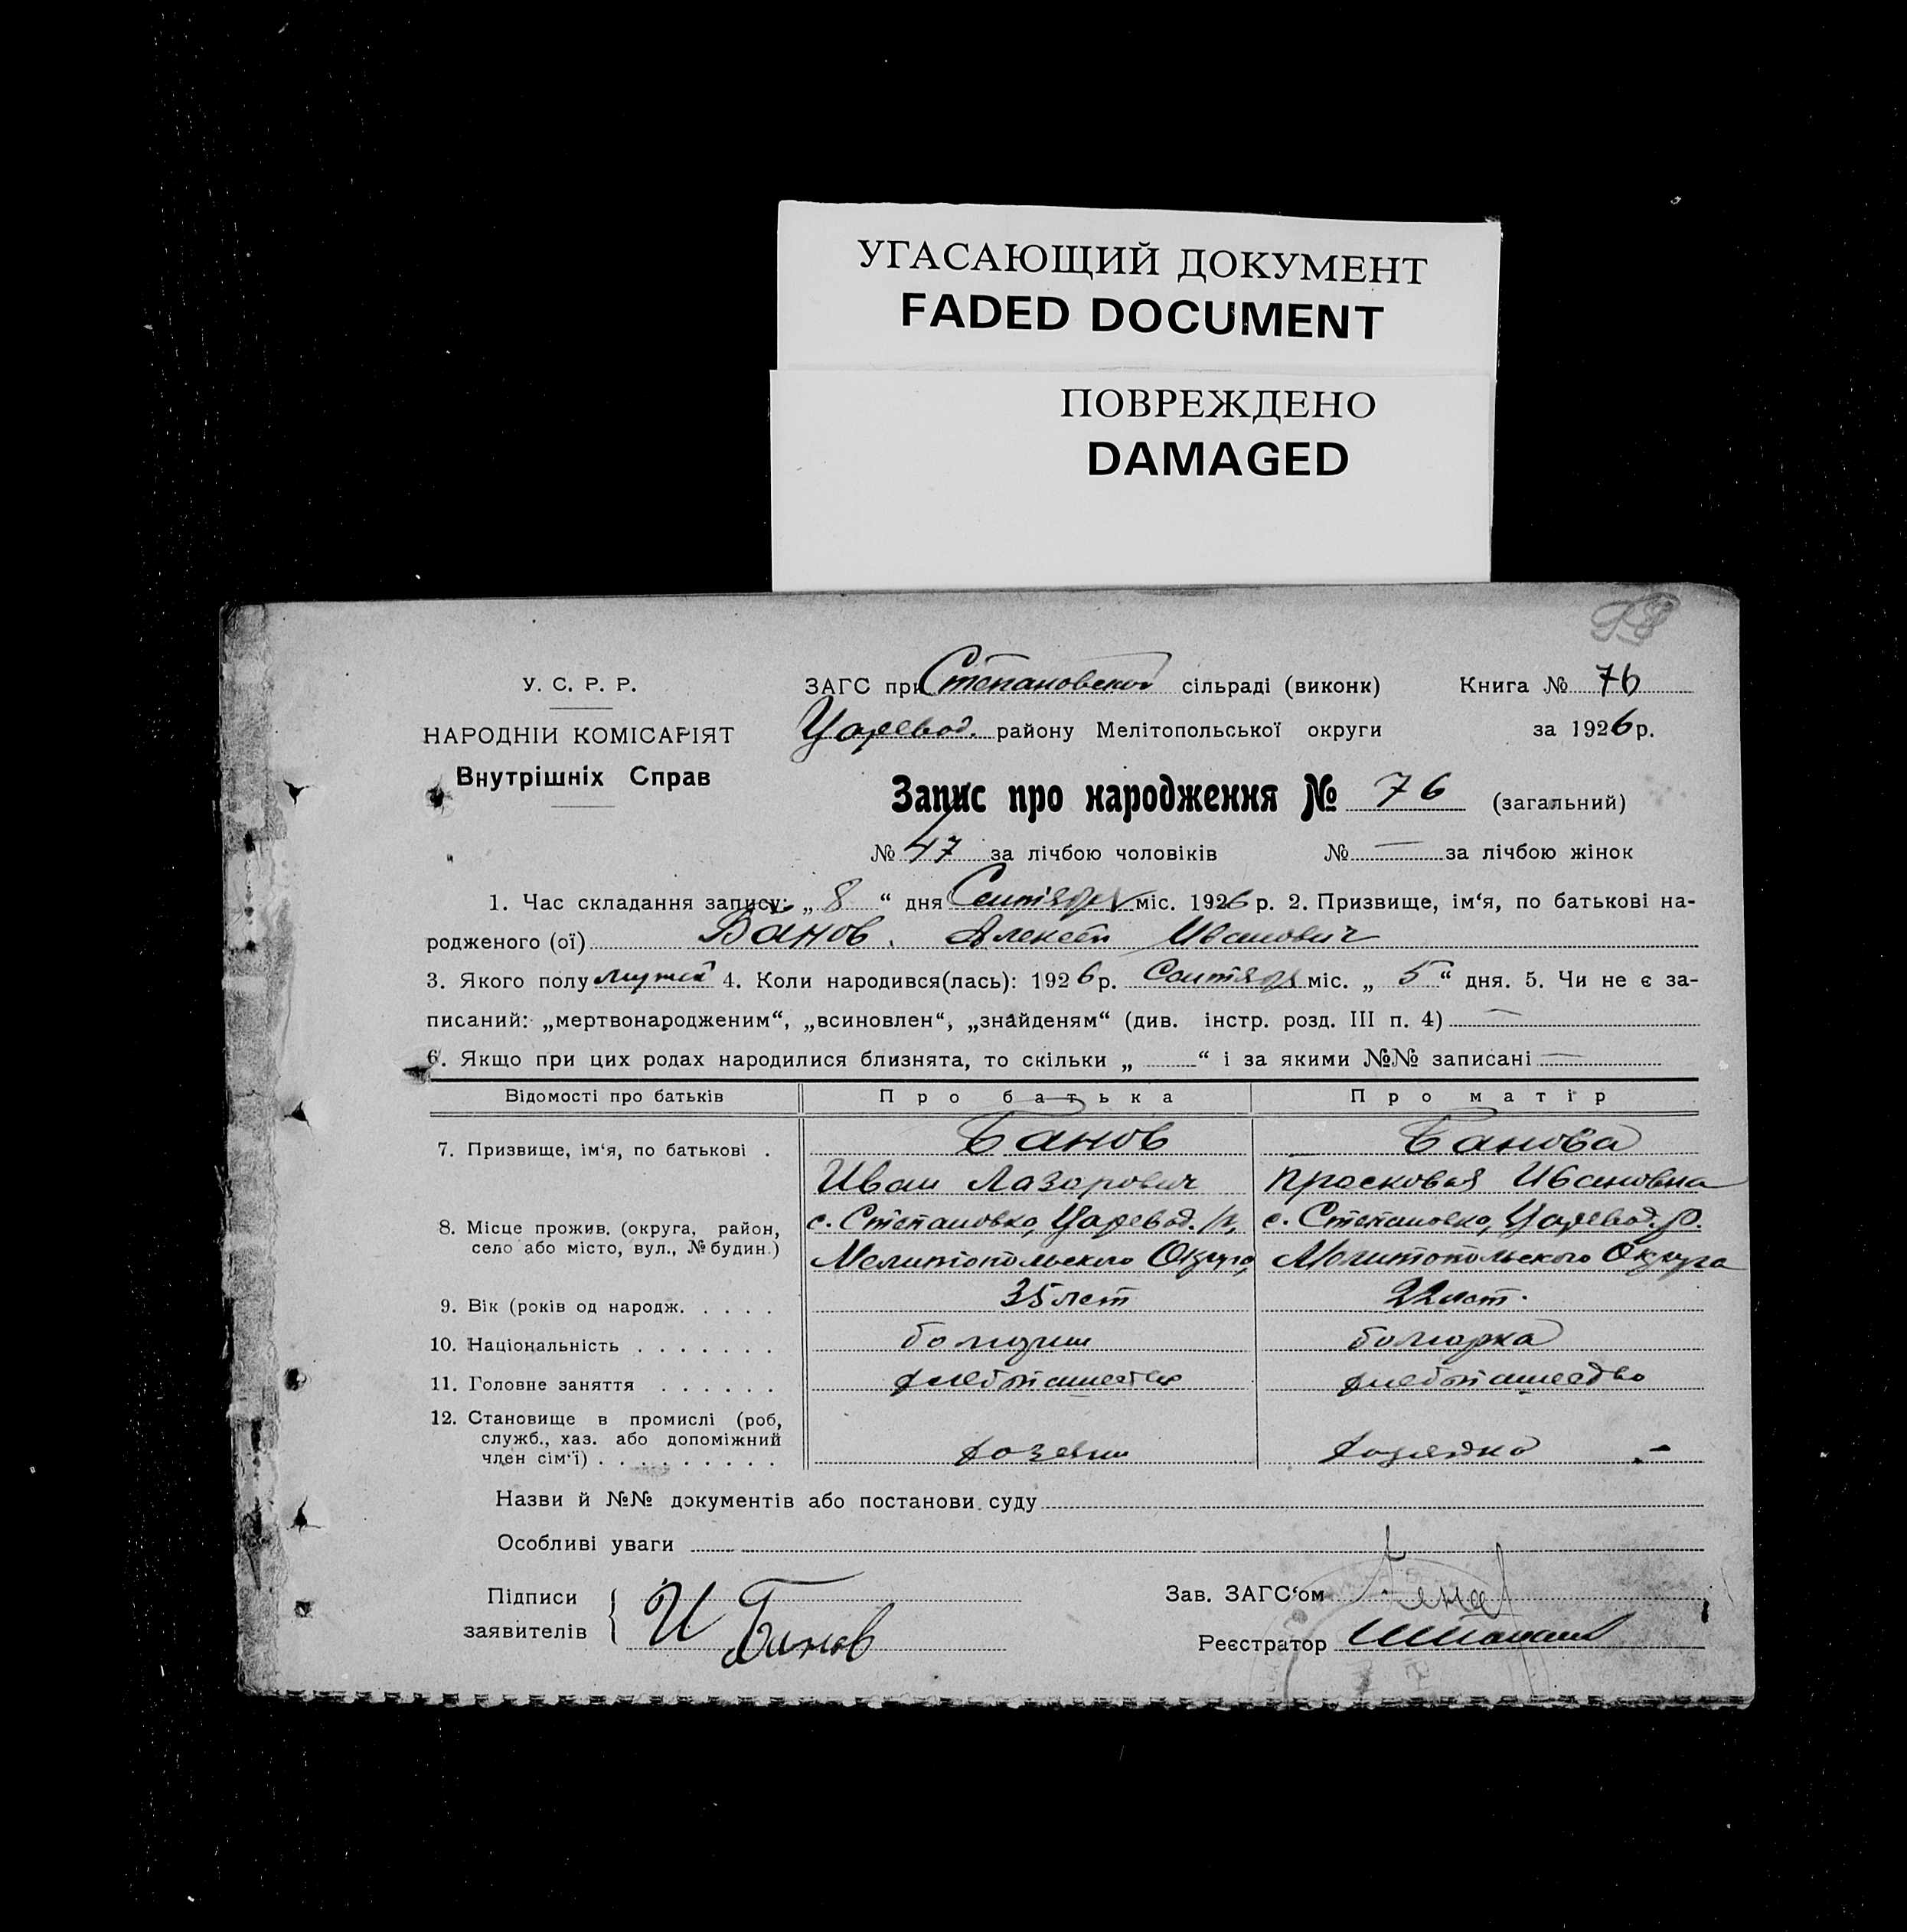 УГАСАЮЩИЙ ДОКУМЕНТ
FADED DOCUMENT
ПОВРЕЖДЕНО
DAMAGED
У. С. Р. Р.
НАРОДНІЙ КОМІСАРІЯТ
Внутрішніх Справ
ЗАГС при Степановской сільраді (виконк) Книга № 76
Царевод. району Мелітопольської округи за 1926 р.
Запис про народження № 76 (загальний)
№ 47 за лічбою чоловіків № — за лічбою жінок
1. Час складання запису: „ 8 “ дня Сентября міс. 1926 р. 2. Призвище, ім‘я, по батькові на-
родженого (ої) Банов. Алексей Иванович
3. Якого полу мужск 4. Коли народився(лась): 1926 р. Сентября міс. „ 5 “ дня. 5. Чи не є за-
писаний: „мертвонародженим“, „всиновлен“, „знайденям“ (див. інстр. розд. III п. 4) —
6. Якщо при цих родах народилися близнята, то скільки „ “ і за якими №№ записані —
Відомості про батьків Про батька Про матір
7. Призвище, ім‘я, по батькові . Банов Банова
Иван Лазарович Прасковья Ивановна
8. Місце прожив. (округа, район, с. Степановка, Царевод. р, с. Степановка, Царевод. р.
село або місто, вул., № будин.) Мелитопольского Округа Мелитопольского Округа
9. Вік (років од народж. . . . . 35 лет 22 лет.
10. Національність . . . . . . . болгарин болгарка
11. Головне заняття . . . . . . хлебопашество хлебопашество
12. Становище в промислі (роб,
служб., хаз. або допоміжний
член сім‘ї) . . . . . . . . . хозяин хозяйка -
Назви й №№ документів або постанови суду
Особливі уваги
Підписи
заявителів И Банов
Зав. ЗАГС‘ом
Реєстратор